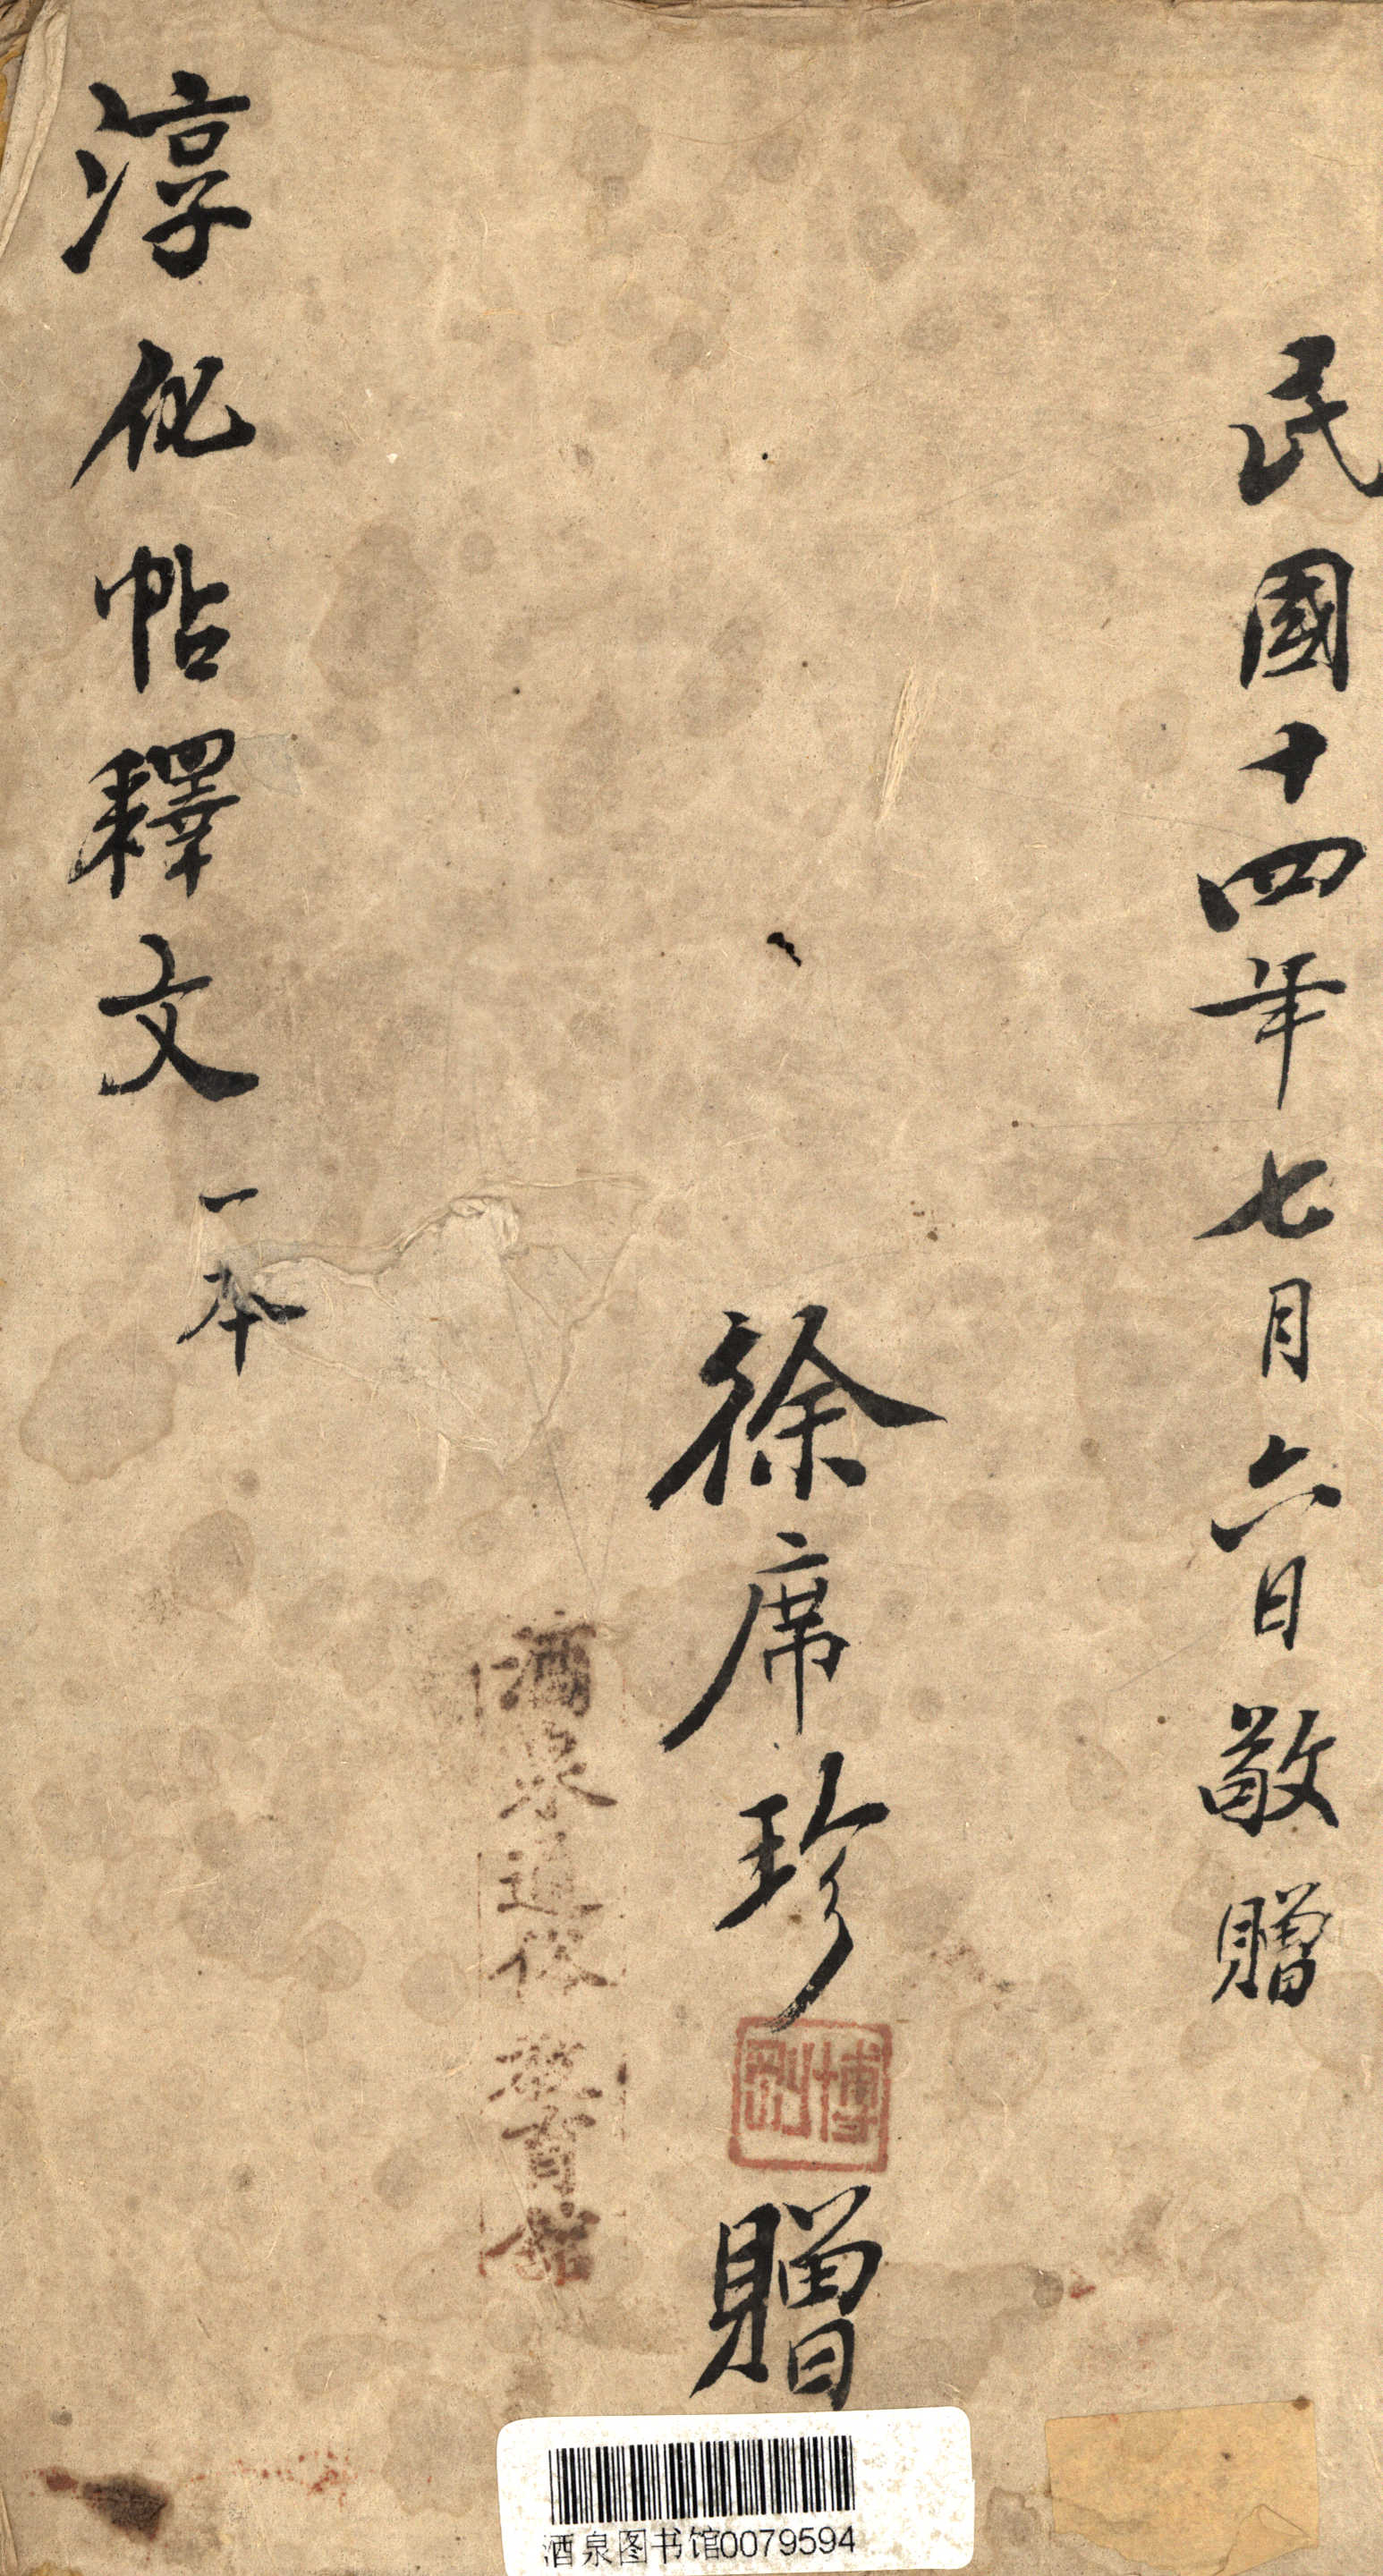 民國十四年七月六日敬贈
徐席珍
博
剛
贈
酒泉通俗教育館
淳化帖釋文一本
酒泉图书馆0079594